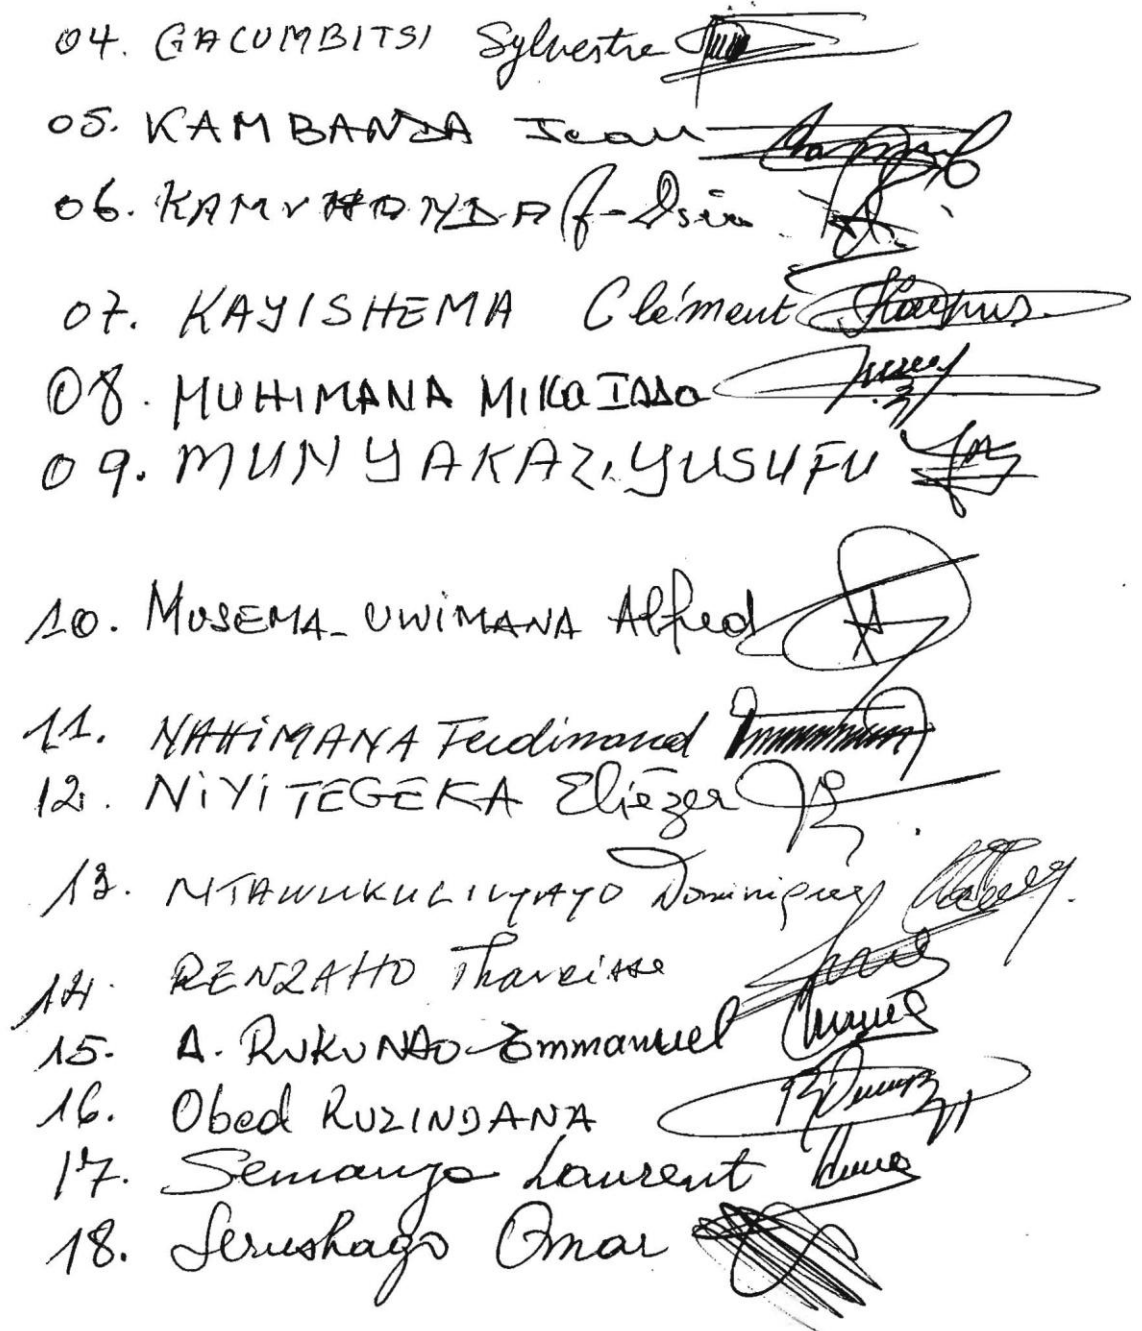 04. GACUMBITSI Sylvestre
05. KAMBANDA Jean
06. KAMUHANDA J-Dieu
07. KAYISHEMA Clément
08. MUHIMANA Mika Issa
09. MUNYAKAZI YUSUFU
10. MUSEMA-UWIMANA Alfred
11. NAHIMANA Ferdinand
12. NIYITEGEKA Eliézer
13. NTAWUKULILYAYO Dominique
14. RENZAHO Tharcisse
15. A. RUKUNDO Emmanuel
16. Obed RUZINDANA
17. Semanza Laurent
18. Serushago Omar